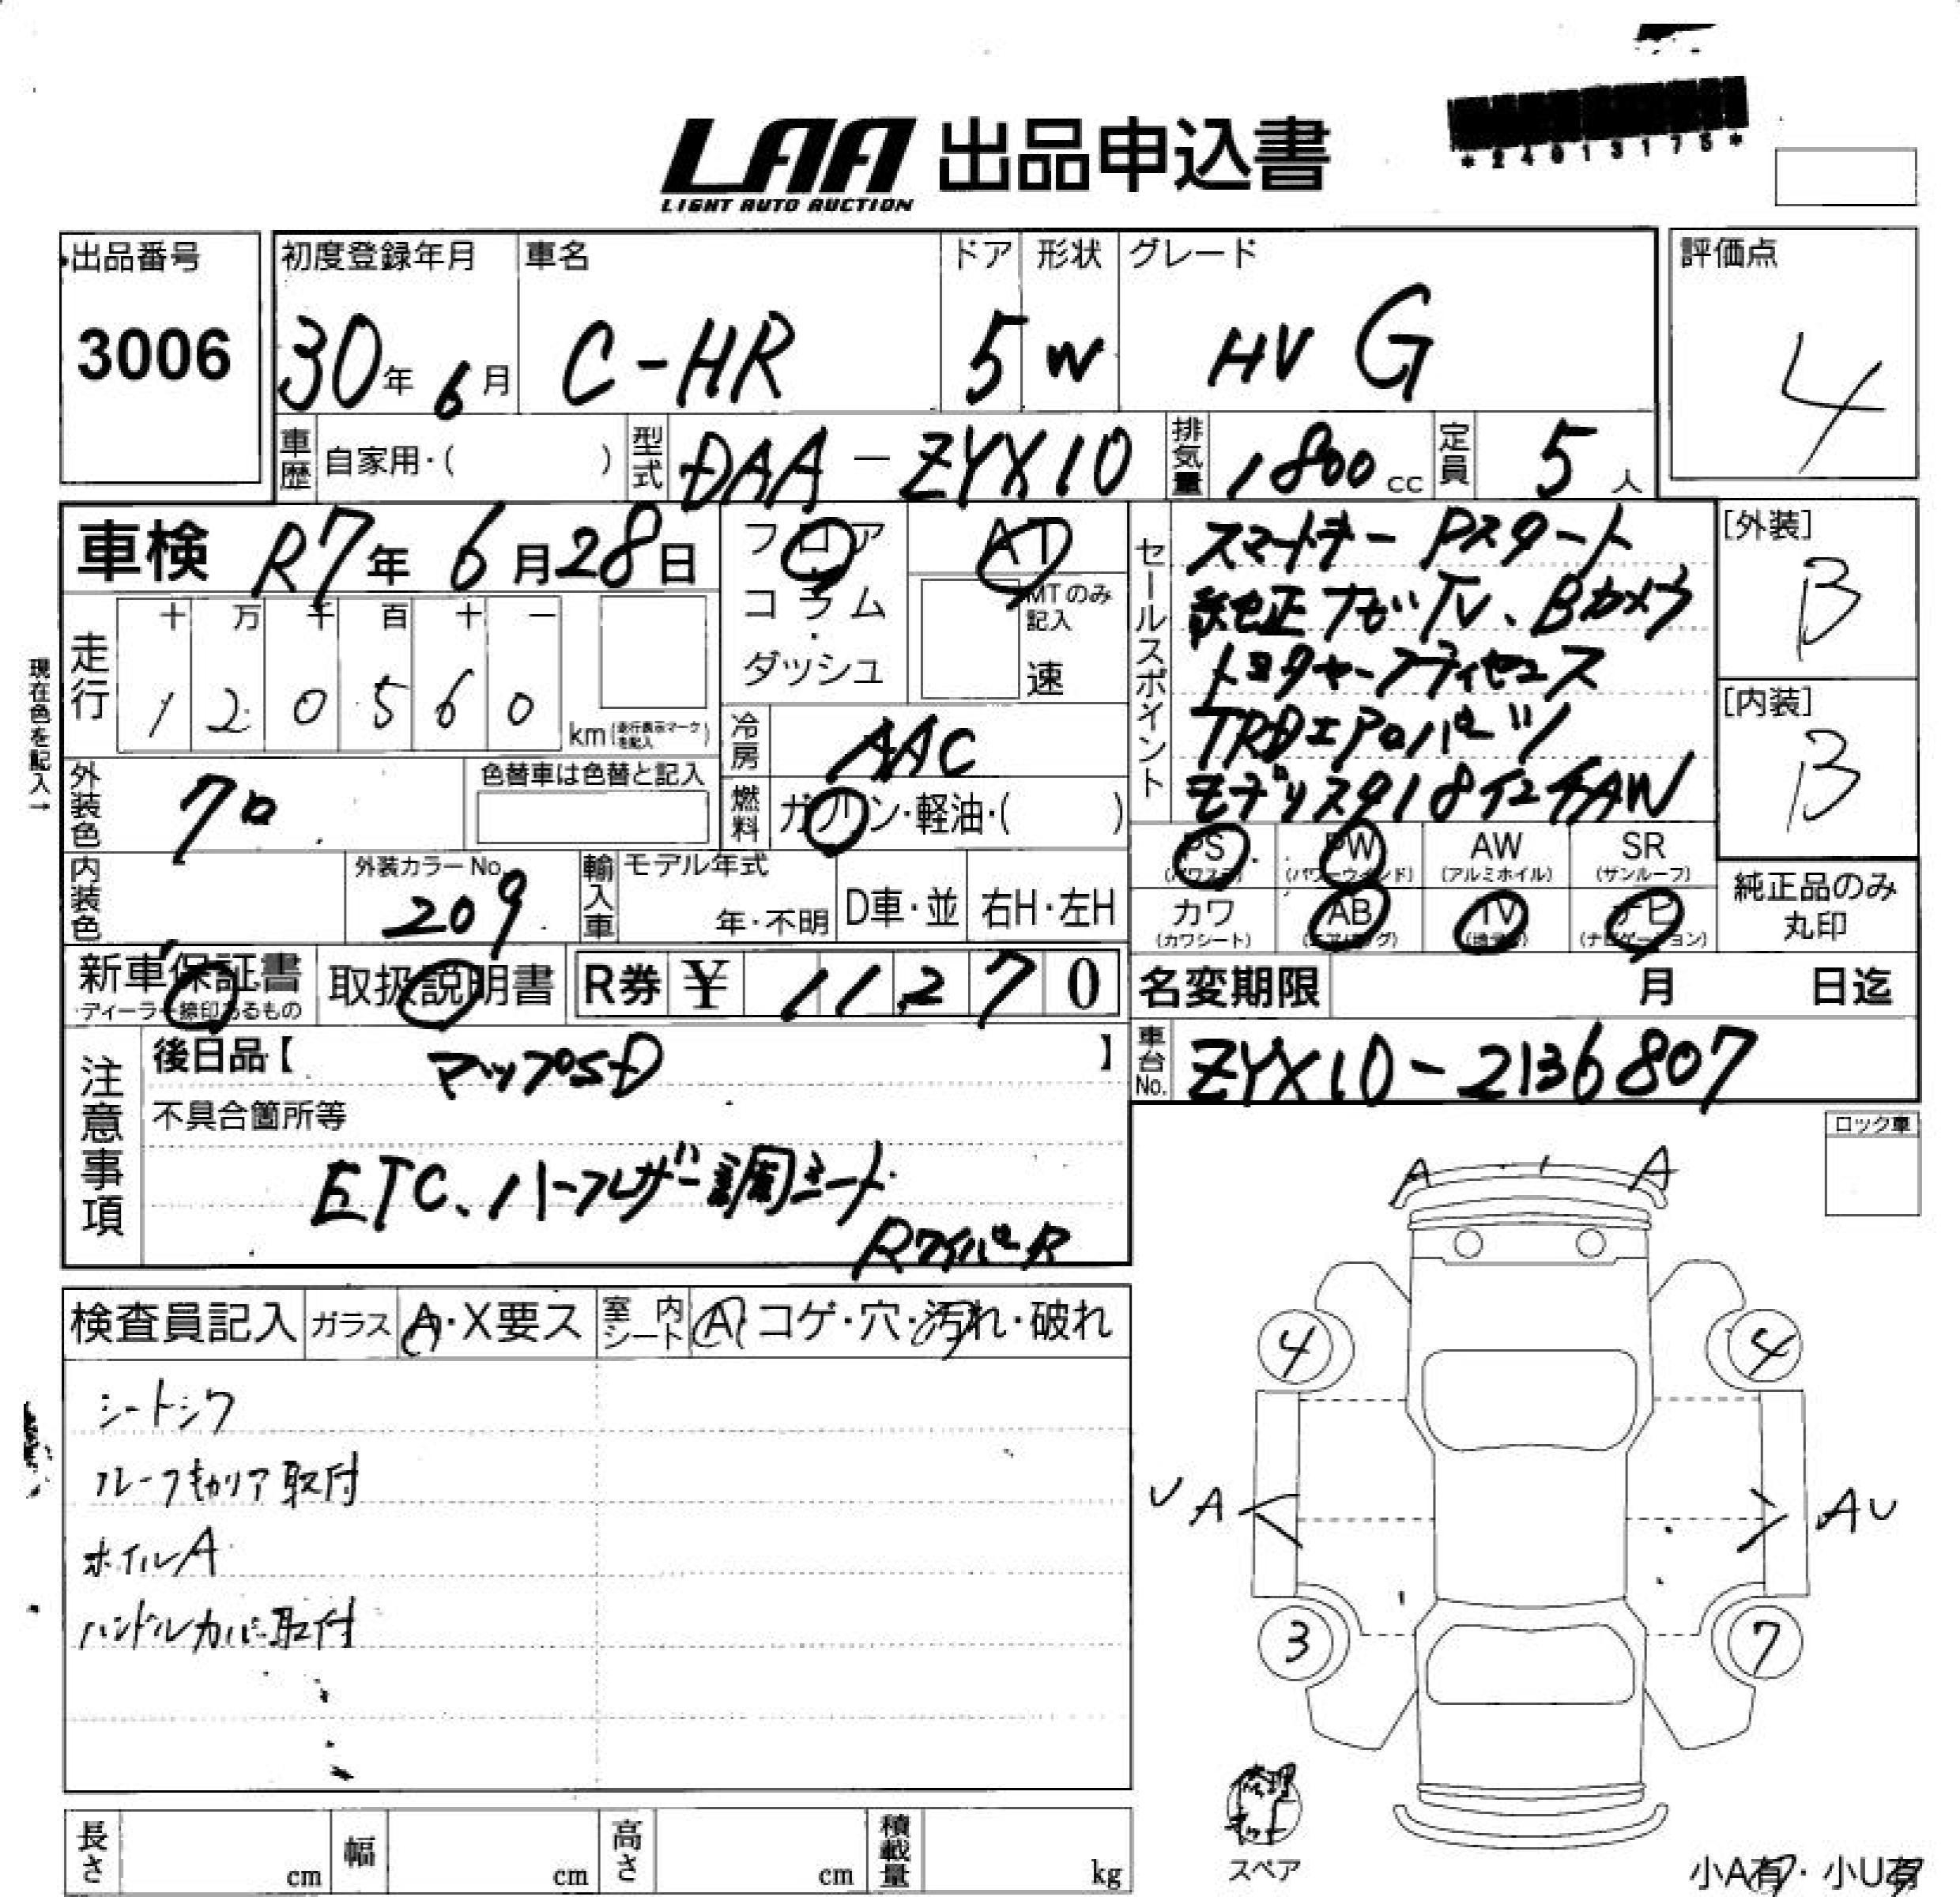 *24013175*
LAA 出品申込書
LIGHT AUTO AUCTION
出品番号
3006
初度登録年月
30年 6月
車名
C-HR
ドア
5
形状
W
グレード
HV G
評価点
4
車歴 自家用・( )
型式 DAA-ZYX10
排気量 1800cc
定員 5人
車検 R7年 6月28日
フロア
コラム
・
ダッシュ
AT
MTのみ
記入
速
走行
十 万 千 百 十 一
1 2 0 5 6 0
km (走行表示マークを記入)
現在色を記入→
冷房 AAC
燃料 ガソリン・軽油・( )
外装色 クロ
色替車は色替と記入
内装色
外装カラーNo.
209
輸入車
モデル年式
年・不明
D車・並
右H・左H
セールスポイント
スマートキー Pスタート
純正ナビTV、Bカメラ
TRDエアロパーツ
モデリスタ18インチAW
[外装]
B
[内装]
B
PS
(パワステ)
PW
(パワーウインド)
AW
(アルミホイル)
SR
(サンルーフ)
カワ
(カワシート)
AB
(エアバッグ)
TV
ナビ
(ナビゲーション)
純正品のみ
丸印
新車保証書
ディーラー捺印あるもの
取扱説明書
R券 ¥ 11,270
名変期限 月 日迄
車台No. ZYX10-2136807
注意事項
後日品【 マップSD 】
不具合箇所等
ETC、ハーフレザー調シート
RワイパーR
ロック車
検査員記入
ガラス A・X要ス
室内シート A コゲ・穴・汚れ・破れ
シートシワ
ルーフキャリア取付
ホイルA
ハンドルカバー取付
A A
4 4
UA AU
3 7
修理キット
スペア
小A有・小U有
長さ cm
幅 cm
高さ cm
積載量 kg